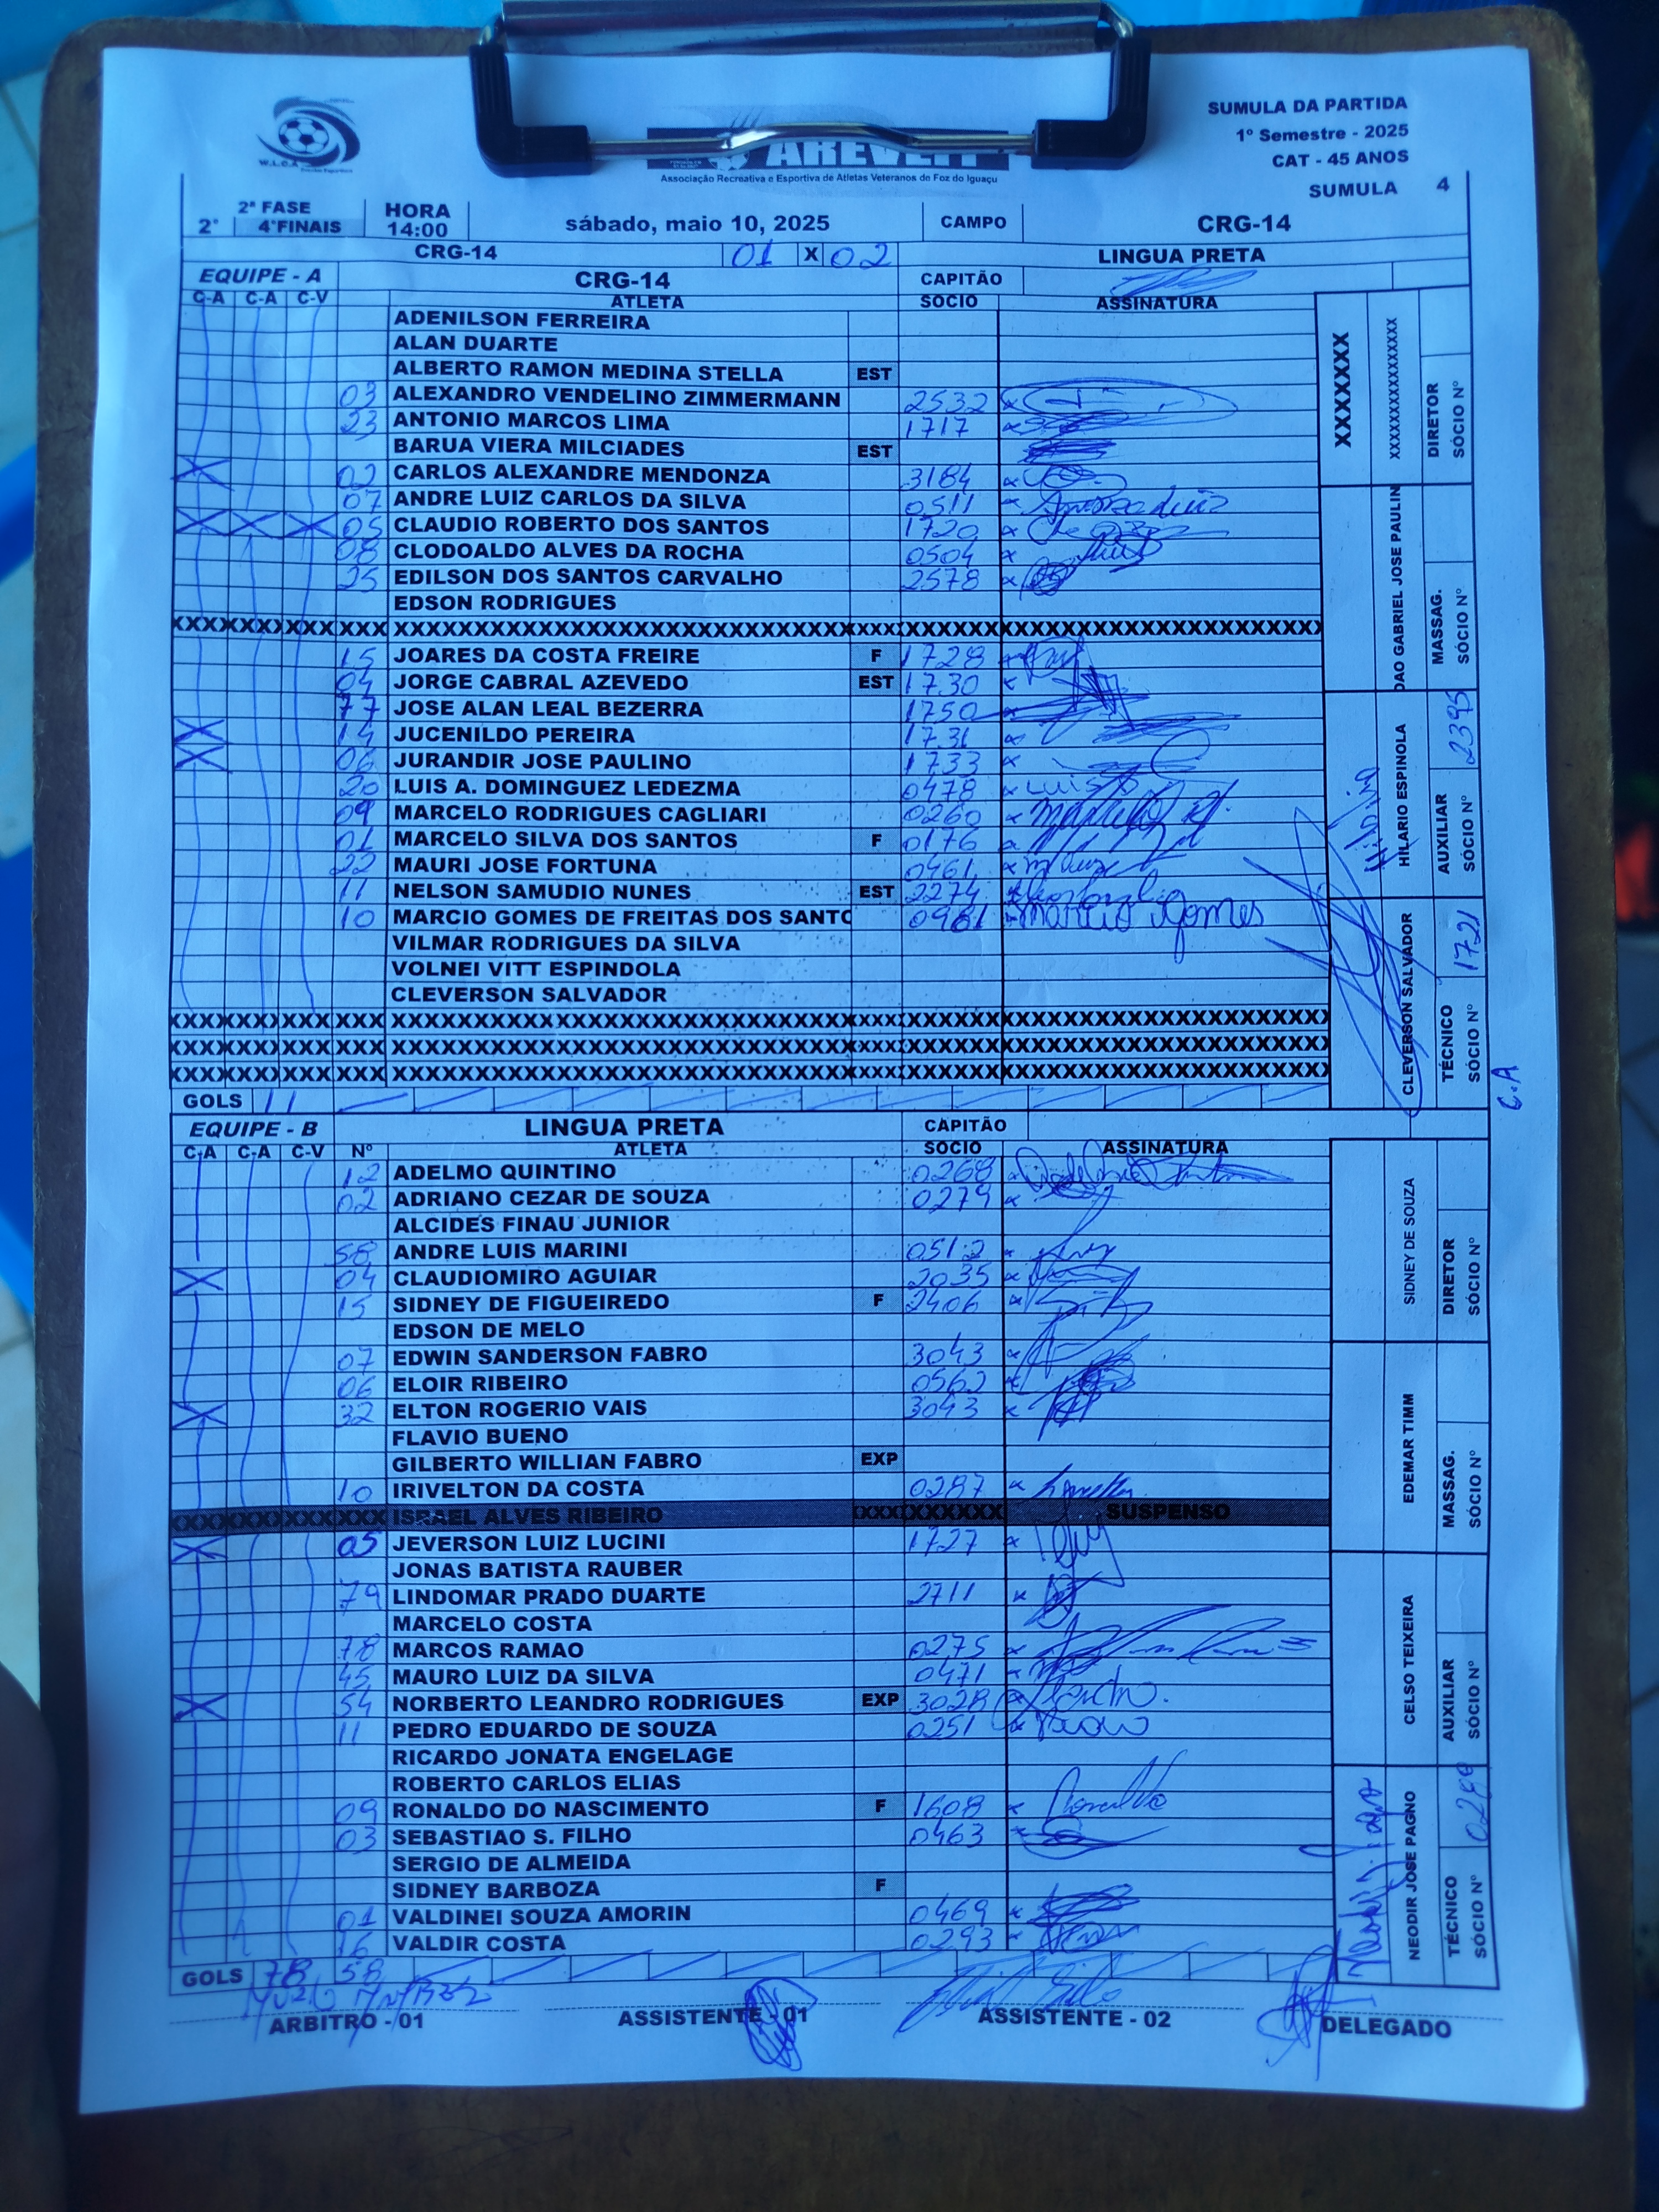 SUMULA DA PARTIDA
1º Semestre - 2025
CAT - 45 ANOS
SUMULA 4
W.L.C.A
Associação Recreativa e Esportiva de Atletas Veteranos de Foz do Iguaçu
2ª FASE
2ª 4ªFINAIS HORA 14:00 sábado, maio 10, 2025 CAMPO CRG-14
CRG-14 01 X 02 LINGUA PRETA
EQUIPE - A CRG-14 CAPITÃO
C-A C-A C-V ATLETA SOCIO ASSINATURA
ADENILSON FERREIRA
ALAN DUARTE
ALBERTO RAMON MEDINA STELLA EST
03 ALEXANDRO VENDELINO ZIMMERMANN 2532
23 ANTONIO MARCOS LIMA 1717
BARUA VIERA MILCIADES EST
X 02 CARLOS ALEXANDRE MENDONZA 3184
07 ANDRE LUIZ CARLOS DA SILVA 0511
X X X 05 CLAUDIO ROBERTO DOS SANTOS 1720
08 CLODOALDO ALVES DA ROCHA 0504
25 EDILSON DOS SANTOS CARVALHO 2578
EDSON RODRIGUES
15 JOARES DA COSTA FREIRE F 1728
04 JORGE CABRAL AZEVEDO EST 1730
77 JOSE ALAN LEAL BEZERRA 1750
X 14 JUCENILDO PEREIRA 1731
X 06 JURANDIR JOSE PAULINO 1733
20 LUIS A. DOMINGUEZ LEDEZMA 0478 Luis
09 MARCELO RODRIGUES CAGLIARI 0260
01 MARCELO SILVA DOS SANTOS F 0176
22 MAURI JOSE FORTUNA 0461
11 NELSON SAMUDIO NUNES EST 2274
10 MARCIO GOMES DE FREITAS DOS SANTO 0981 Marcio Gomes
VILMAR RODRIGUES DA SILVA
VOLNEI VITT ESPINDOLA
CLEVERSON SALVADOR
GOLS 11
XXXXXXX
XXXXXXXXXXXXXXXX
DIRETOR
SÓCIO Nº
OAO GABRIEL JOSE PAULIN
MASSAG.
SÓCIO Nº
HILARIO ESPINOLA
AUXILIAR
SÓCIO Nº 2395
CLEVERSON SALVADOR
TÉCNICO
SÓCIO Nº 1721
C.A
EQUIPE - B LINGUA PRETA CAPITÃO
C-A C-A C-V Nº ATLETA SOCIO ASSINATURA
12 ADELMO QUINTINO 0268
02 ADRIANO CEZAR DE SOUZA 0279
ALCIDES FINAU JUNIOR
58 ANDRE LUIS MARINI 0512
X 04 CLAUDIOMIRO AGUIAR 2035
15 SIDNEY DE FIGUEIREDO F 2406
EDSON DE MELO
07 EDWIN SANDERSON FABRO 3043
06 ELOIR RIBEIRO 0562
X 32 ELTON ROGERIO VAIS 3043
FLAVIO BUENO
GILBERTO WILLIAN FABRO EXP
10 IRIVELTON DA COSTA 0287
ISRAEL ALVES RIBEIRO SUSPENSO
X 05 JEVERSON LUIZ LUCINI 1727
JONAS BATISTA RAUBER
79 LINDOMAR PRADO DUARTE 2711
MARCELO COSTA
78 MARCOS RAMAO 0275
45 MAURO LUIZ DA SILVA 0471
X 54 NORBERTO LEANDRO RODRIGUES EXP 3028
11 PEDRO EDUARDO DE SOUZA 0251
RICARDO JONATA ENGELAGE
ROBERTO CARLOS ELIAS
09 RONALDO DO NASCIMENTO F 1608
03 SEBASTIAO S. FILHO 0463
SERGIO DE ALMEIDA
SIDNEY BARBOZA F
01 VALDINEI SOUZA AMORIN 0469
16 VALDIR COSTA 0293
GOLS 78 58
SIDNEY DE SOUZA
DIRETOR
SÓCIO Nº
EDEMAR TIMM
MASSAG.
SÓCIO Nº
CELSO TEIXEIRA
AUXILIAR
SÓCIO Nº
NEODIR JOSE PAGNO
TÉCNICO
SÓCIO Nº
ARBITRO - 01 ASSISTENTE - 01 ASSISTENTE - 02 DELEGADO